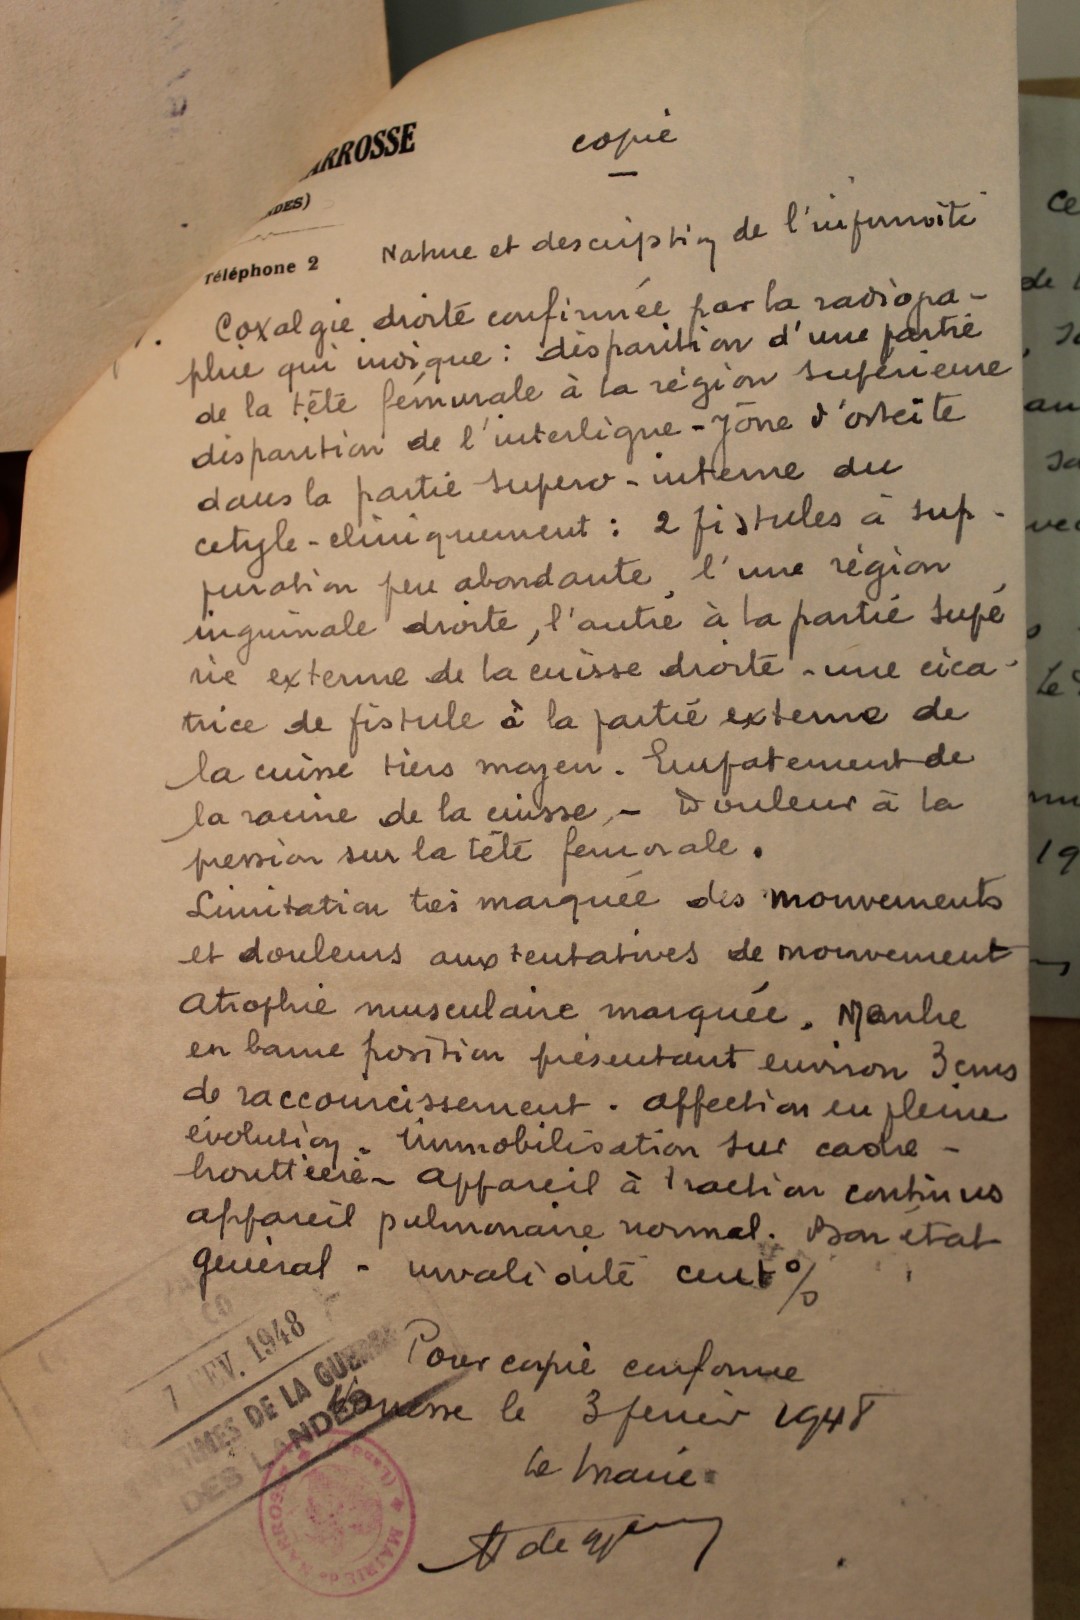 ARROSSE
copie
NDES)
Téléphone 2
Nature et description de l'infirmité
Coxalgie droite confirmée par la radiogra-
phie qui indique : disparition d'une partie
de la tête fémurale à la région supérieure
disparition de l'interligne - zône d'ostéite
dans la partie supero-interne du
cotyle - cliniquement : 2 fistules à sup-
puration peu abondante, l'une région
inguinale droite, l'autre à la partie supé
rie externe de la cuisse droite - une cica-
trice de fistule à la partie externe de
la cuisse tiers moyen. Empatement de
la racine de la cuisse, - Douleur à la
pression sur la tête femorale.
Limitation très marquée des mouvements
et douleurs aux tentatives de mouvement
atrophie musculaire marquée. Membre
en bonne position présentant environ 3 cms
de raccourcissement. affection en pleine
évolution. Immobilisation sur cadre-
gouttière - appareil à traction continus
appareil pulmonaire normal. Bon état
général - invalidité cent %
Pour copie conforme
Narrosse le 3 février 1948
Le Maire
7 FEV. 1948
VICTIMES DE LA GUERRE
DES LANDES
MAIRIE de NARROSSE (Landes)
ce
de
au
so
vec
Le
19